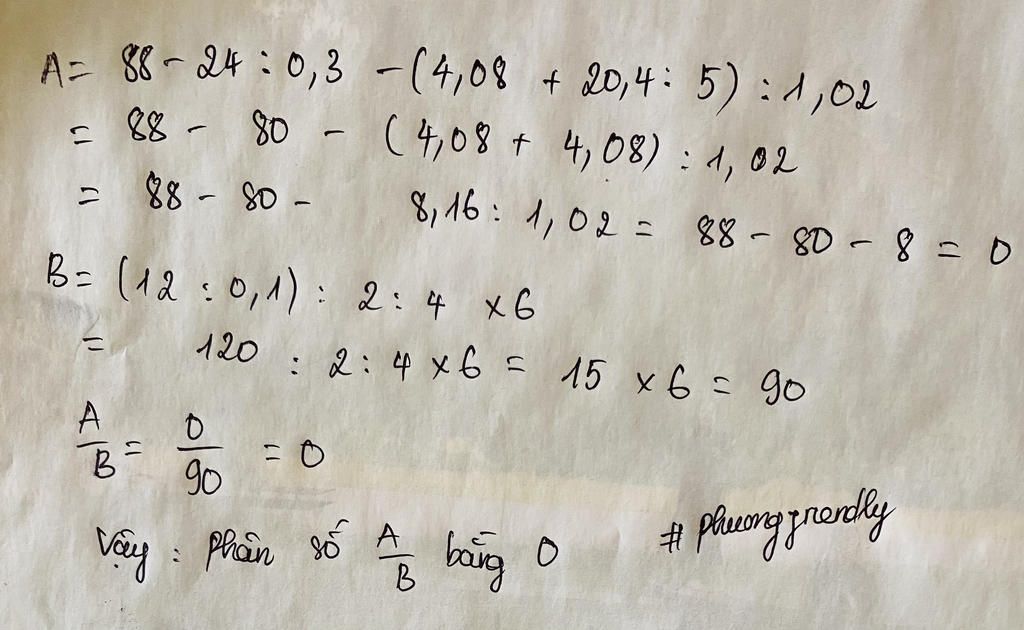 A = 88 - 24 : 0,3 - (4,08 + 20,4 : 5) : 1,02
= 88 - 80 - (4,08 + 4,08) : 1,02
= 88 - 80 - 8,16 : 1,02 = 88 - 80 - 8 = 0
B = (12 : 0,1) : 2 : 4 × 6
= 120 : 2 : 4 × 6 = 15 × 6 = 90
A/B = 0/90 = 0
Vậy : phân số A/B bằng 0 #phuongfriendly